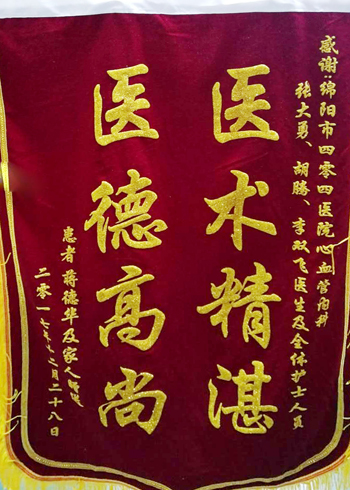 感谢:绵阳市四零四医院心血管内科
张大勇、胡腾、李双飞医生及全体护士人员
医术精湛
医德高尚
患者 蒋德华及家人
二零一七年十二月二十八日